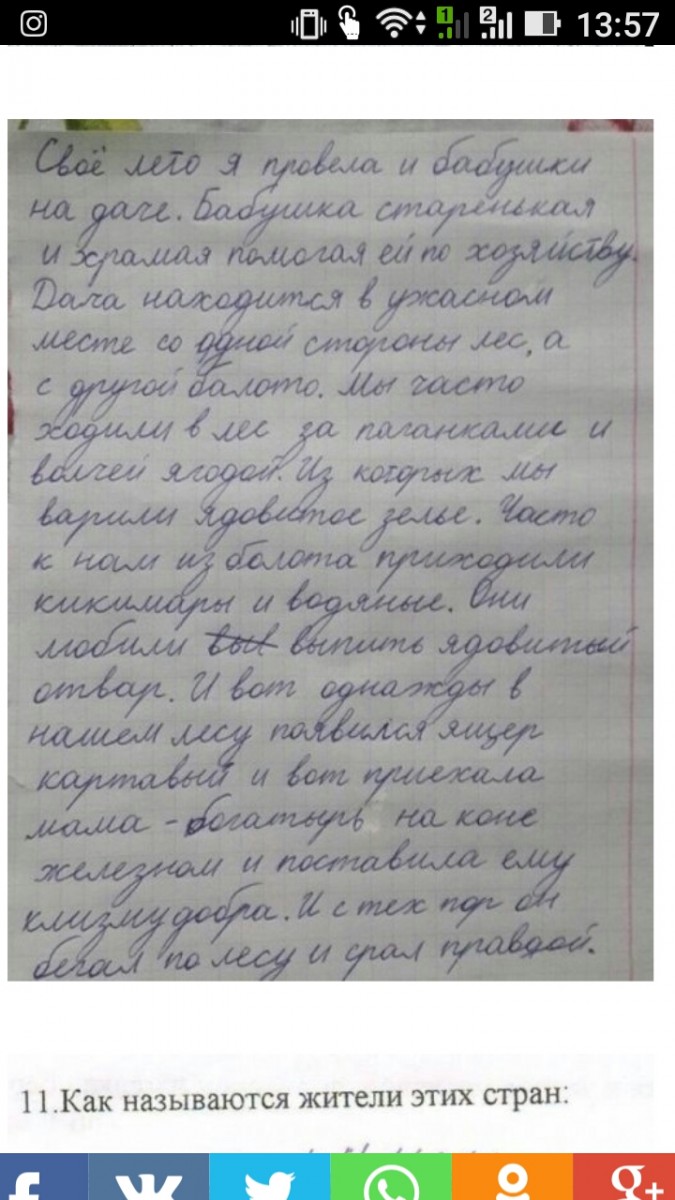 1
2
13:57
Своё лето я провела и бабушки
на даче. Бабушка старенькая
и храмая помогая ей по хозяйству.
Дача находится в ужасном
месте со одной стороны лес, а
с другой балото. Мы часто
ходили в лес за паганками и
волчей ягодой. Из которых мы
варили ядовитое зелье. Часто
к нам из болота приходили
кикимары и водяные. Они
любили выпить ядовитый
отвар. И вот однажды в
нашем лесу появился ящер
картавый и вот приехала
мама - богатырь на коне
железном и поставила ему
клизму добра. И с тех пор он
бегал по лесу и срал правдой.
11.Как называются жители этих стран: